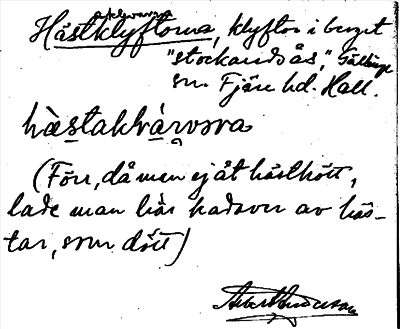 Hästklyftorna, klyftor i berget
"stockaredsås", Gällinge
sn. Fjäre hd. Hall.
hästakḷǻrvora
(Förr, då man ej åt hästkött,
lade man här kadaver av häs-
tar, som dött)